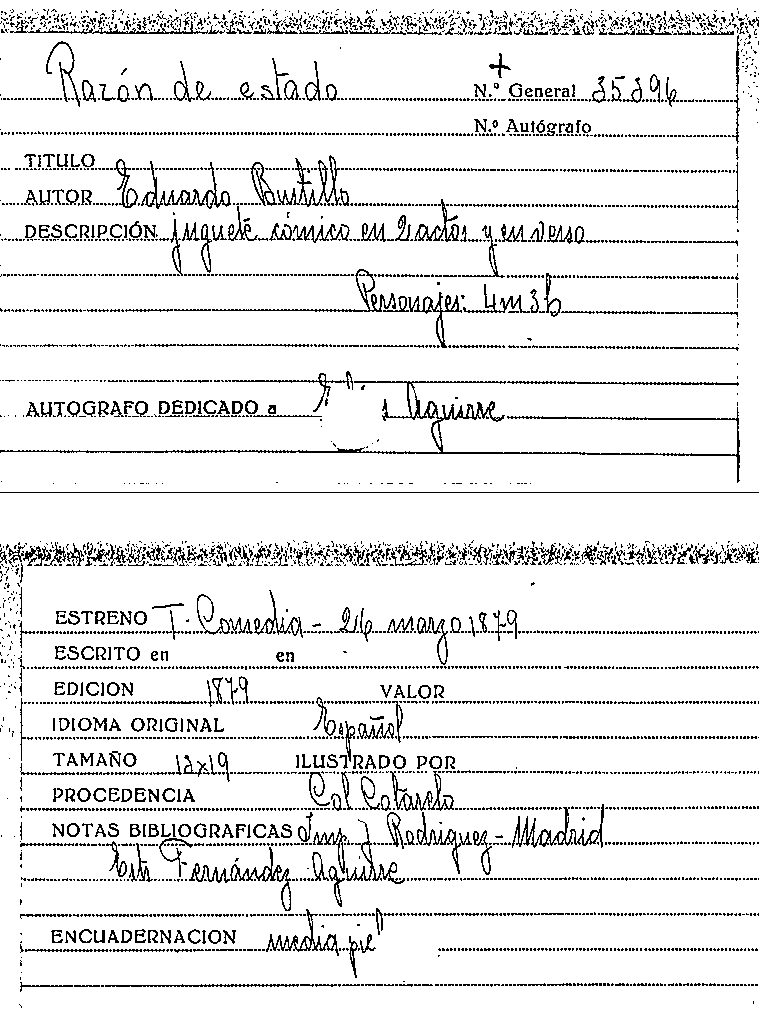 Razón de estado
+
N.º General 35396
N.º Autógrafo
TITULO
AUTOR Eduardo Bustillo
DESCRIPCIÓN juguete cómico en 2 actos y en verso
Personajes: 4m 3h
AUTOGRAFO DEDICADO a Aguirre
ESTRENO T. Comedia - 26 marzo 1879
ESCRITO en en
EDICION 1879 VALOR
IDIOMA ORIGINAL Español
TAMAÑO 12x19 ILUSTRADO POR
PROCEDENCIA Col Cotarelo
NOTAS BIBLIOGRAFICAS Imp J Rodriguez - Madrid
Fernández Aguirre
ENCUADERNACION media piel